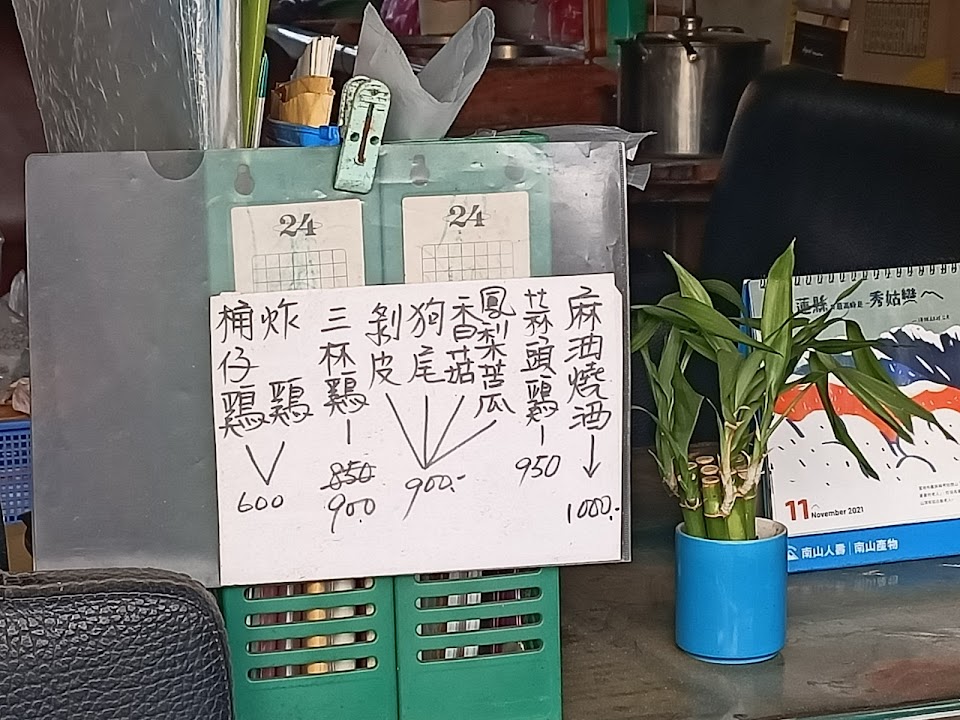 24
24
麻油燒酒
1000.-
蒜頭鷄
950
鳳梨苦瓜
香菇
狗尾
剝皮
900.-
三杯鷄
850
900
炸鷄
桶仔鷄
600
蓮縣
秀姑巒
11 November 2021
南山人壽 | 南山產物